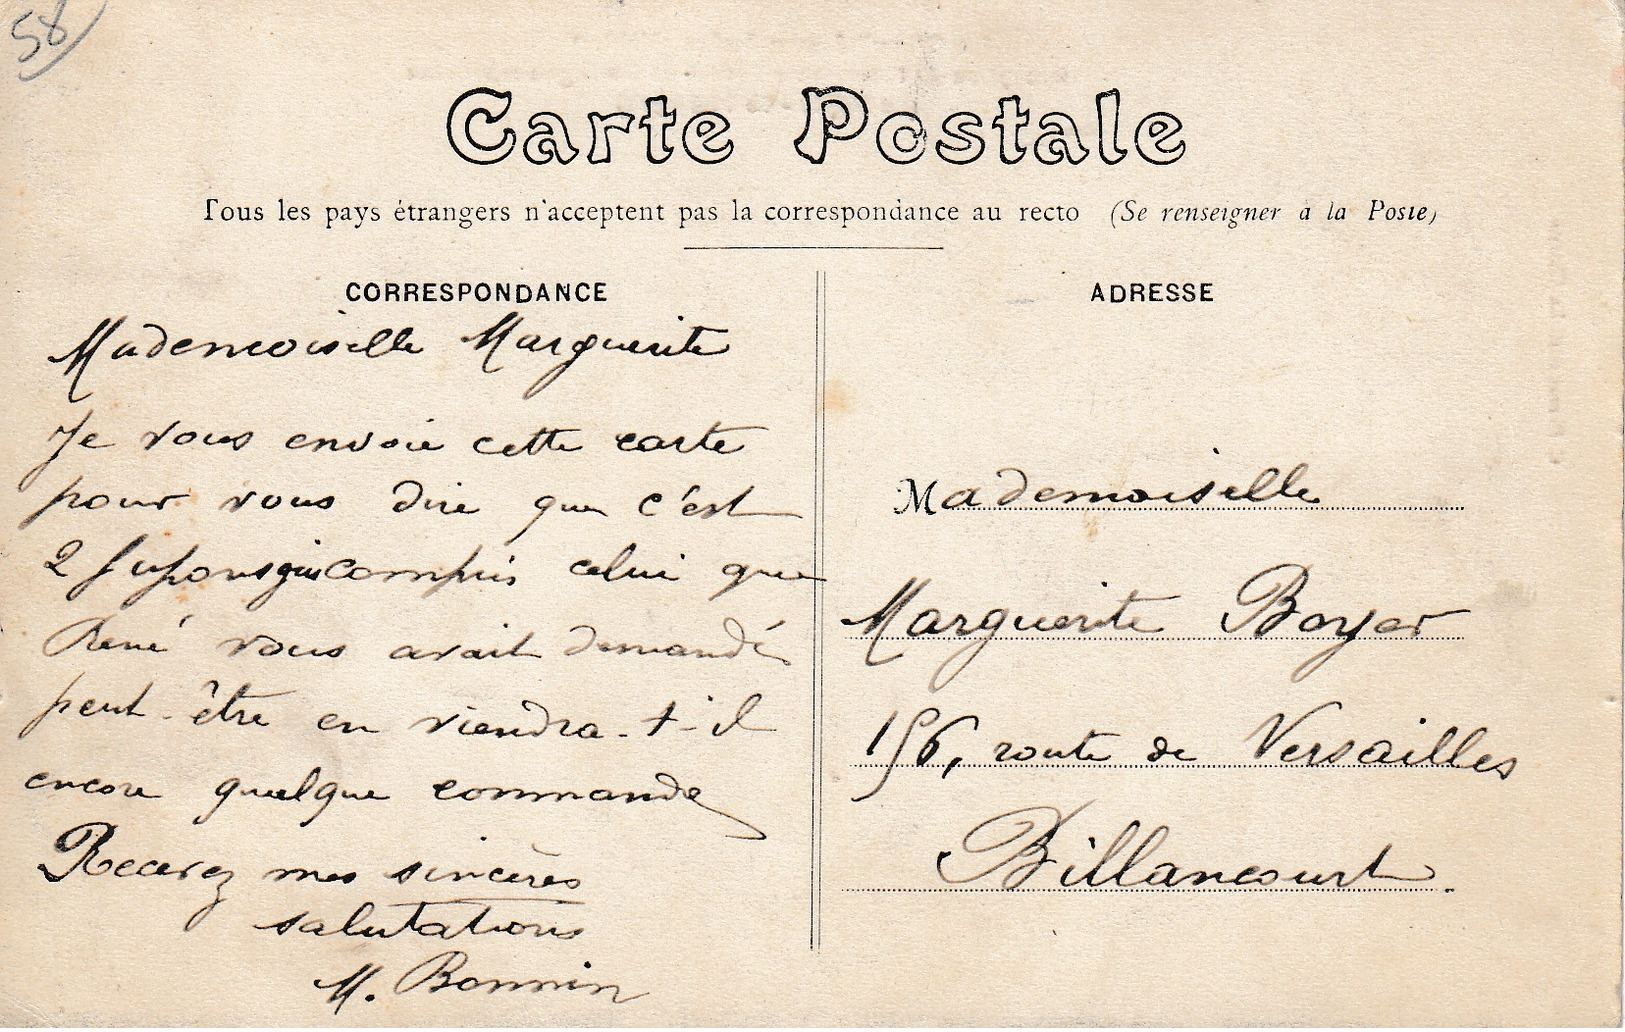 58
Carte Postale
Tous les pays étrangers n'acceptent pas la correspondance au recto (Se renseigner à la Poste)
CORRESPONDANCE
Mademoiselle Marguerite
Je vous envoie cette carte
pour vous dire que c'est
2 Jupons compris celui que
René vous avait demandé
peut-être en viendra-t-il
encore quelque commande
Recevez mes sincères
salutations
M. Bonnin
ADRESSE
Mademoiselle
Marguerite Boyer
156, route de Versailles
Billancourt.